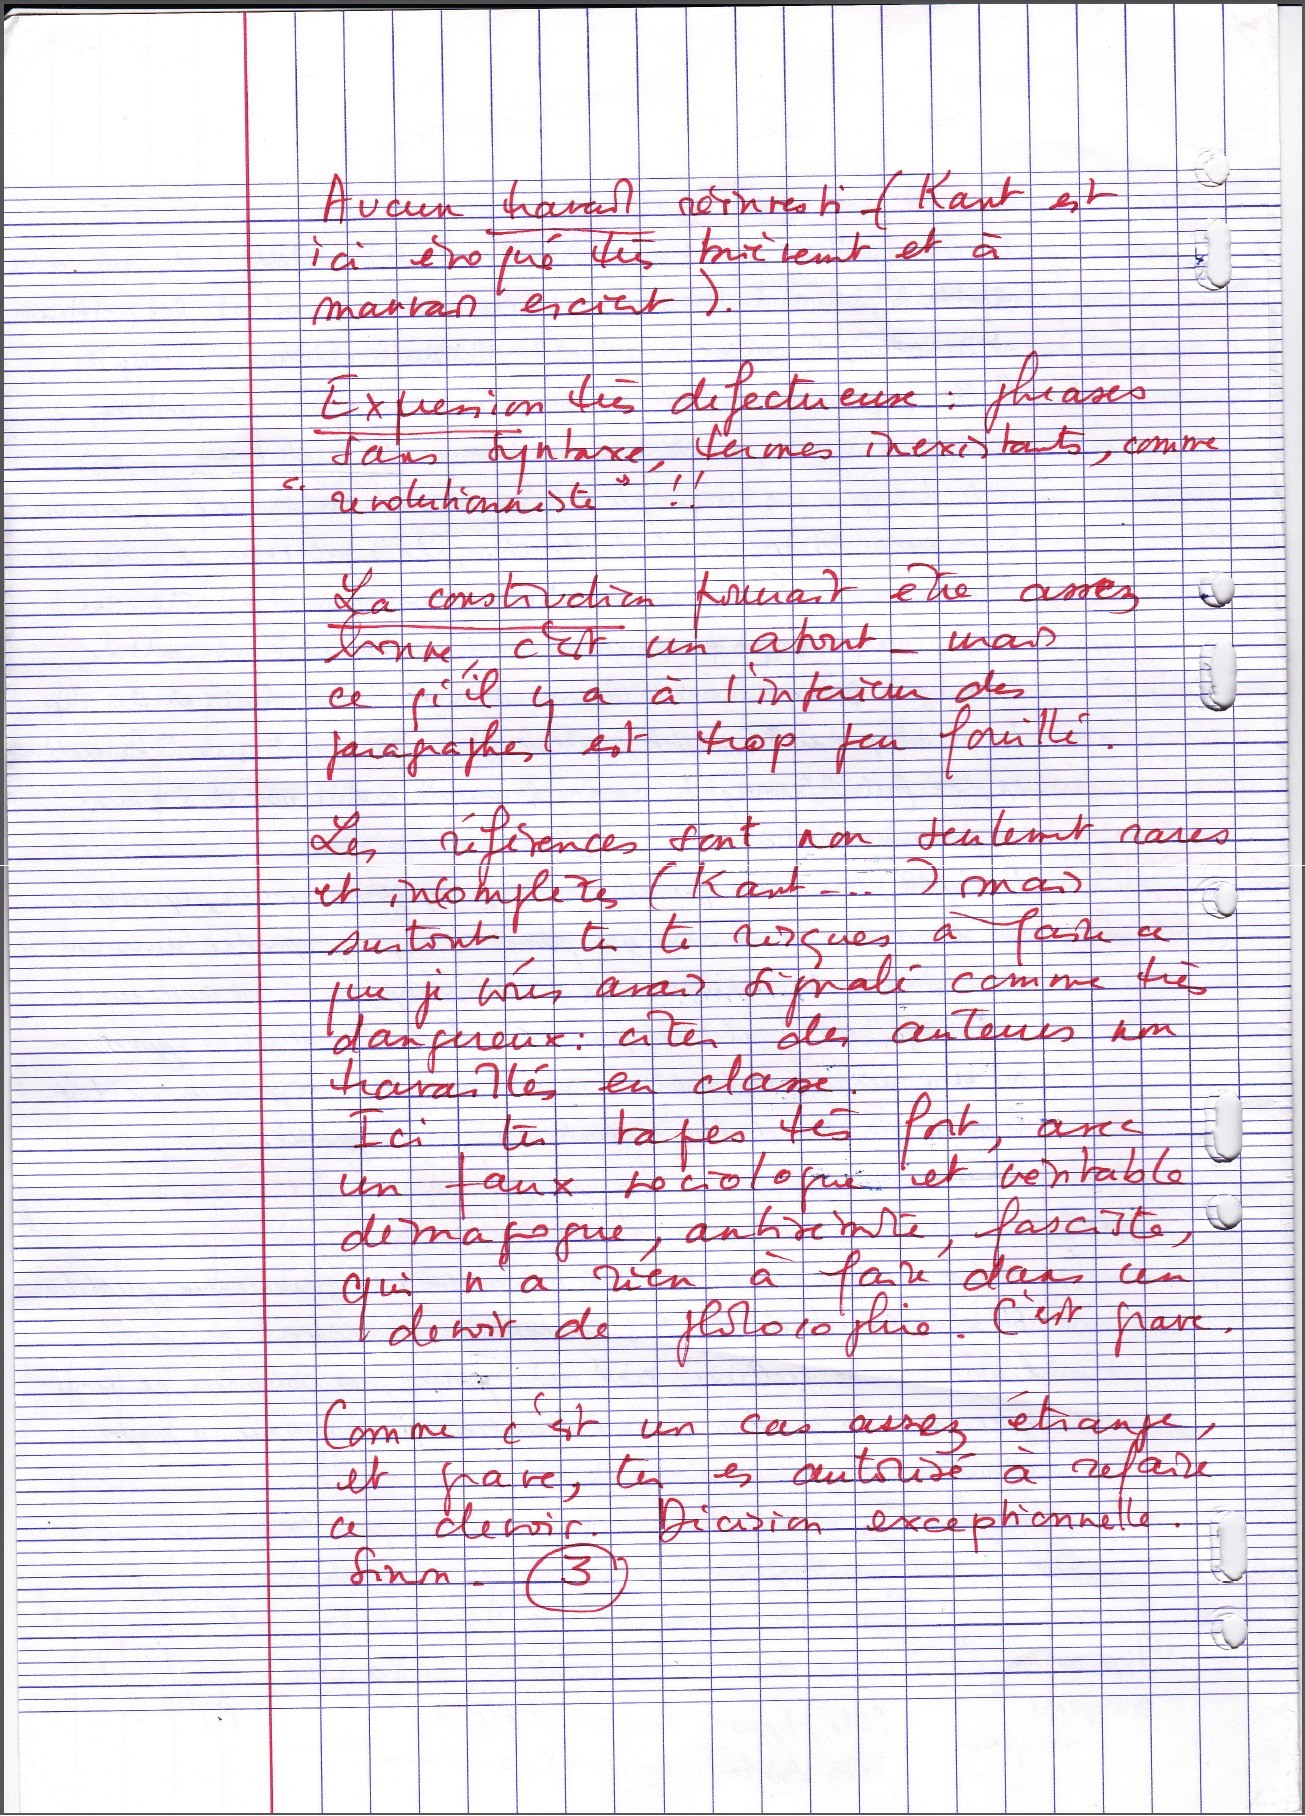 Aucun travail réinvesti (Kant est
ici évoqué très brièvement et à
mauvais escient).
Expression très défectueuse : phrases
sans syntaxe, termes inexistants, comme
"révolutionniste" !!
La construction pourrait être assez
bonne, c'est un atout _ mais
ce qu'il y a à l'intérieur des
paragraphes est trop peu fouillé.
Les références sont non seulement rares
et incomplètes (Kant ...) mais
surtout tu te risques à faire ce
que je vous avais signalé comme très
dangereux : citer des auteurs non
travaillés en classe.
Ici tu tapes très fort, avec
un faux sociologue et véritable
démagogue, antisémite, fasciste,
qui n'a rien à faire dans un
devoir de philosophie. C'est grave.
Comme c'est un cas assez étrange,
et grave, tu es autorisé à refaire
ce devoir. Décision exceptionnelle.
Sinon _ 3